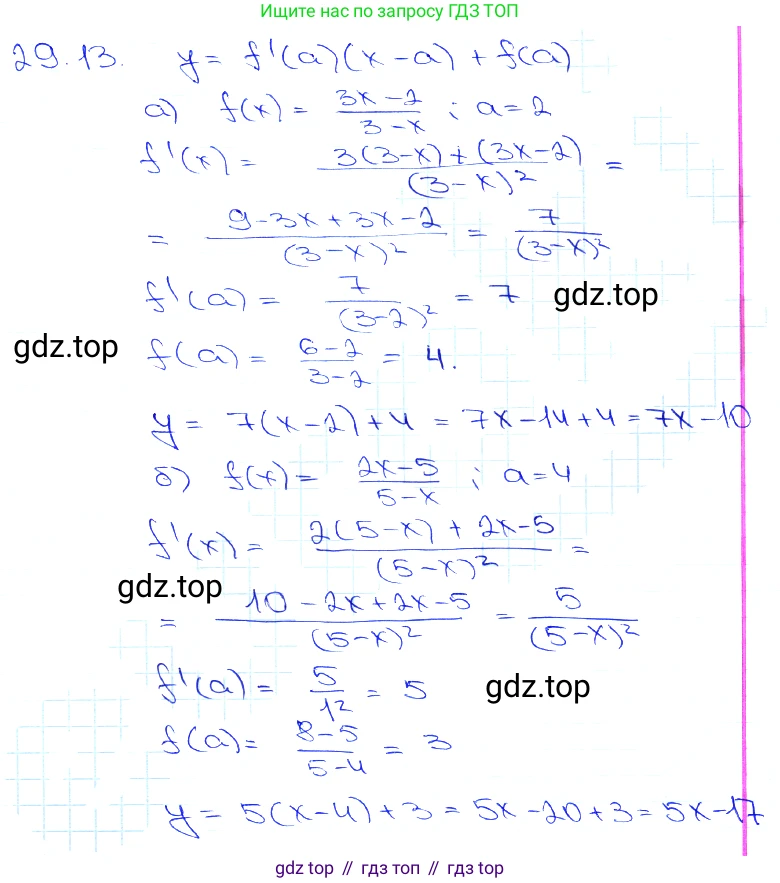 Ищите нас по запросу ГДЗ ТОП
29.13. y = f'(a)(x-a) + f(a)
а) f(x) = (3x-2)/(3-x) ; a=2
f'(x) = (3(3-x)+(3x-2))/(3-x)² =
= (9-3x+3x-2)/(3-x)² = 7/(3-x)²
f'(a) = 7/(3-2)² = 7
gdz.top
gdz.top
f(a) = (6-2)/(3-2) = 4.
y = 7(x-2)+4 = 7x-14+4 = 7x-10
б) f(x) = (2x-5)/(5-x) ; a=4
f'(x) = (2(5-x)+2x-5)/(5-x)² =
gdz.top
= (10-2x+2x-5)/(5-x)² = 5/(5-x)²
f'(a) = 5/1² = 5
gdz.top
f(a) = (8-5)/(5-4) = 3
y = 5(x-4)+3 = 5x-20+3 = 5x-17
gdz top // гдз топ // gdz.top